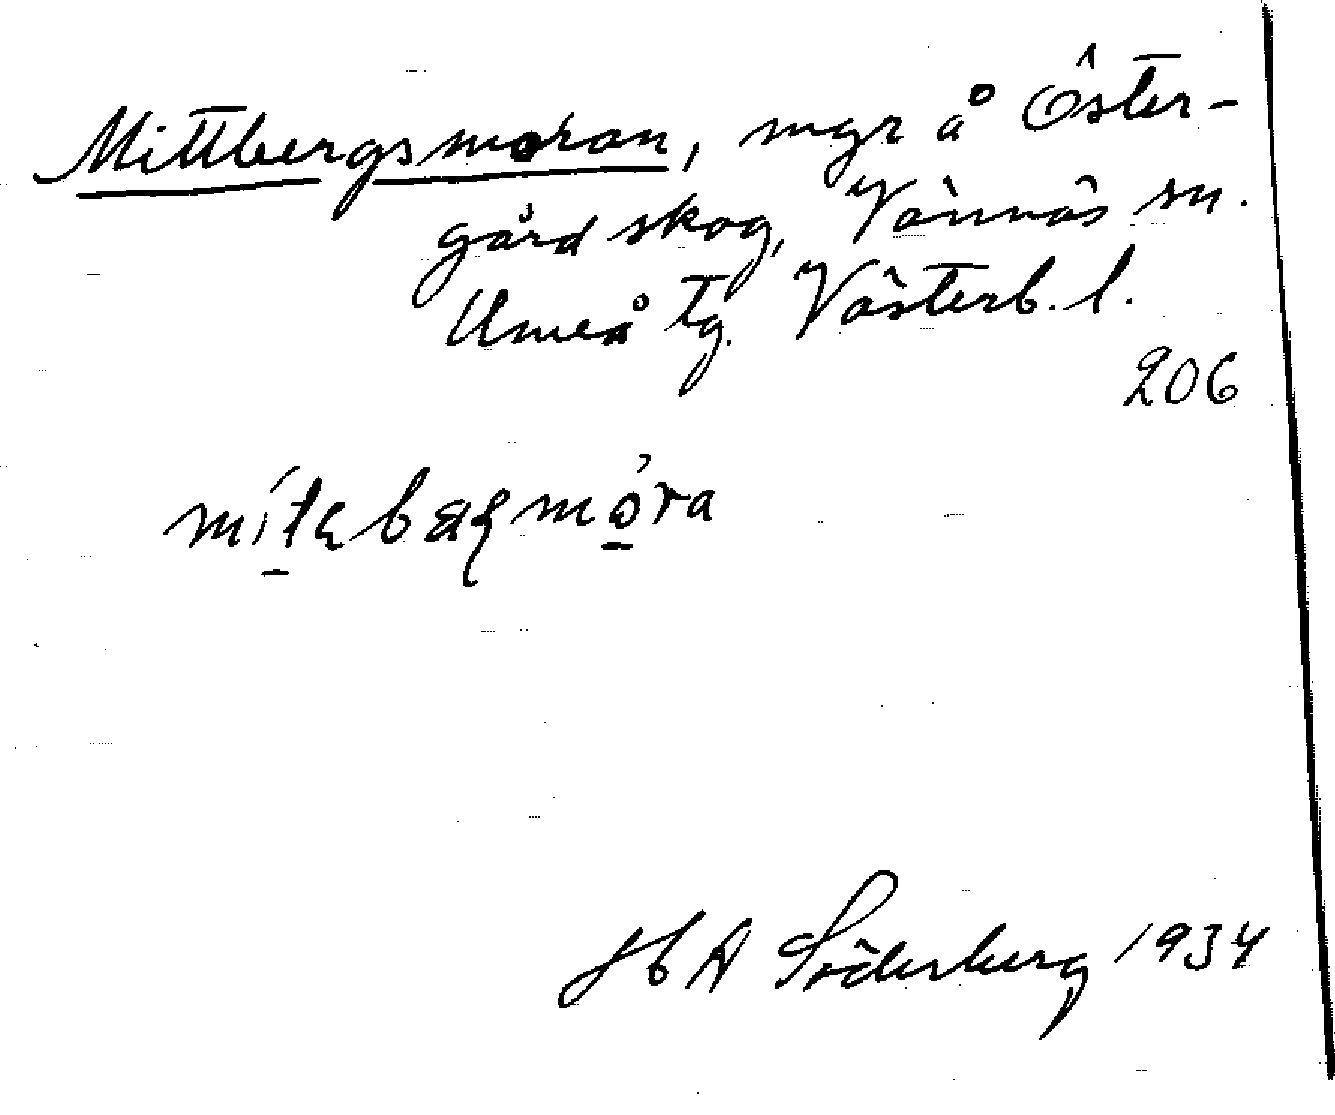 Mittbergsmoran, mgr å Öster-
gård skog, Vännäs sn.
Umeå tg. Västerb. l.
206
H A Söderberg 1934